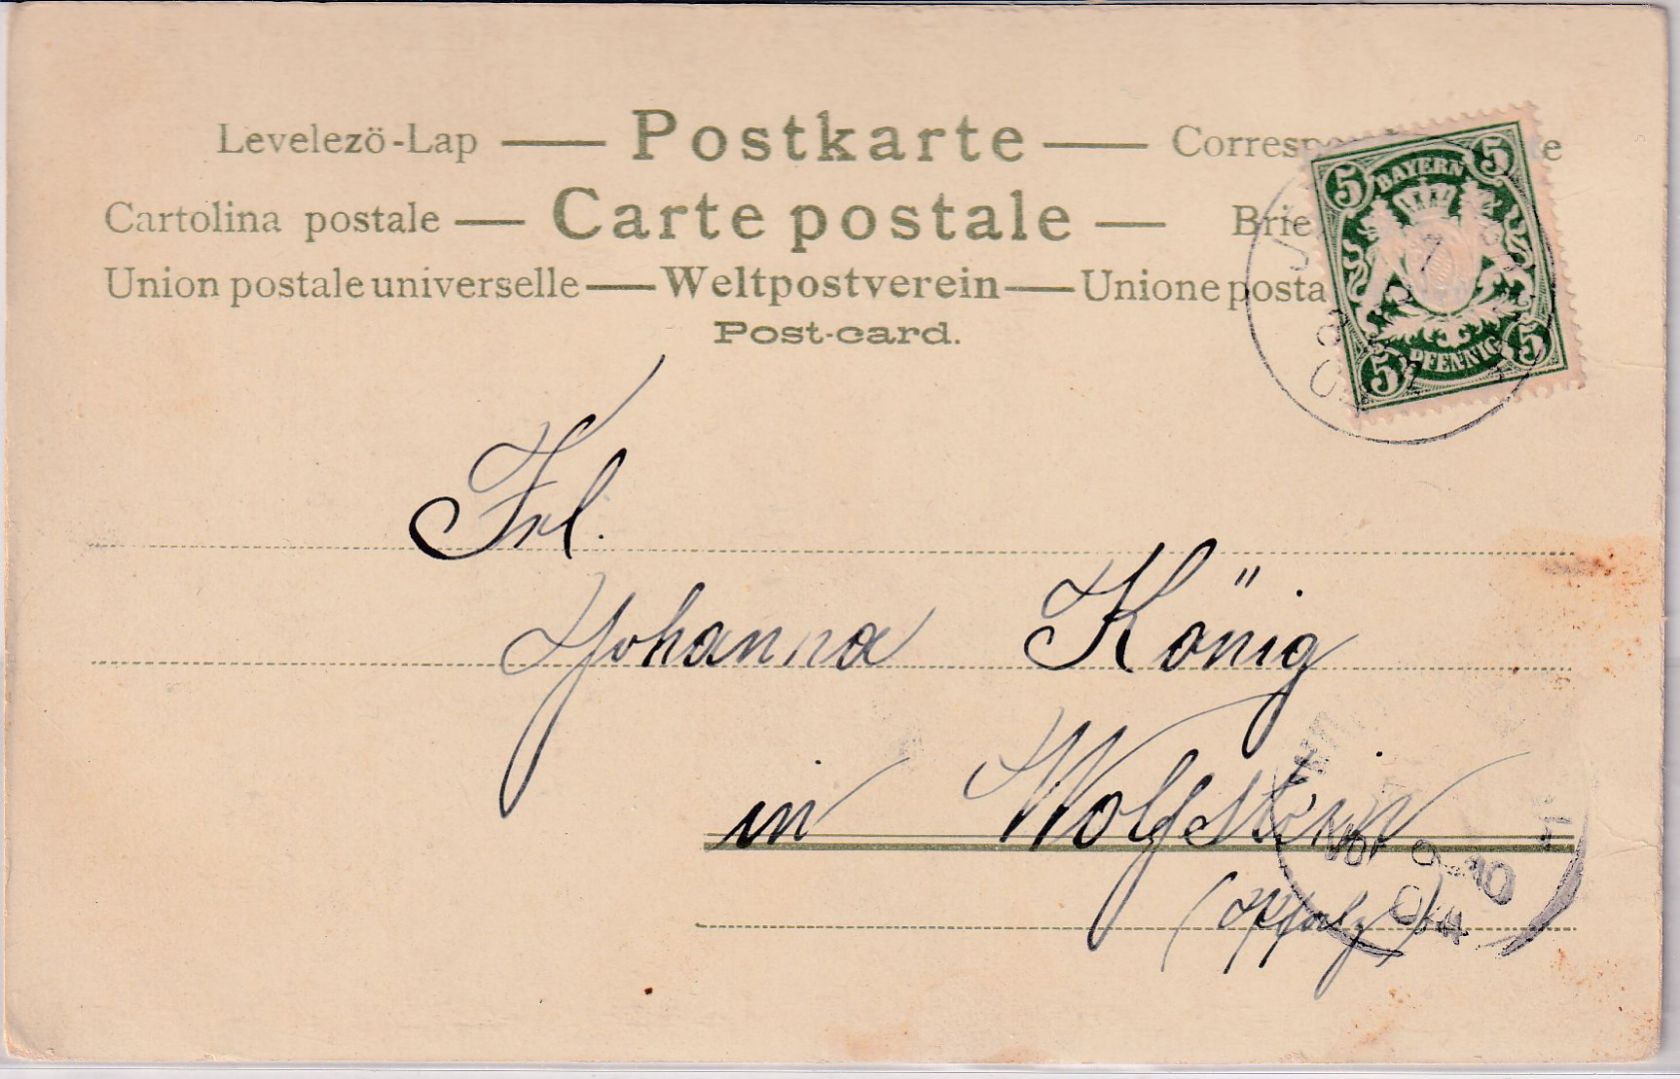 Levelezö-Lap — Postkarte —
Cartolina postale — Carte postale —
Union postale universelle — Weltpostverein — Unione
Post-card.
5 BAYERN 5
5 PFENNIG 5
Frl.
Johanna König
in Wolfstein
(Pfalz)